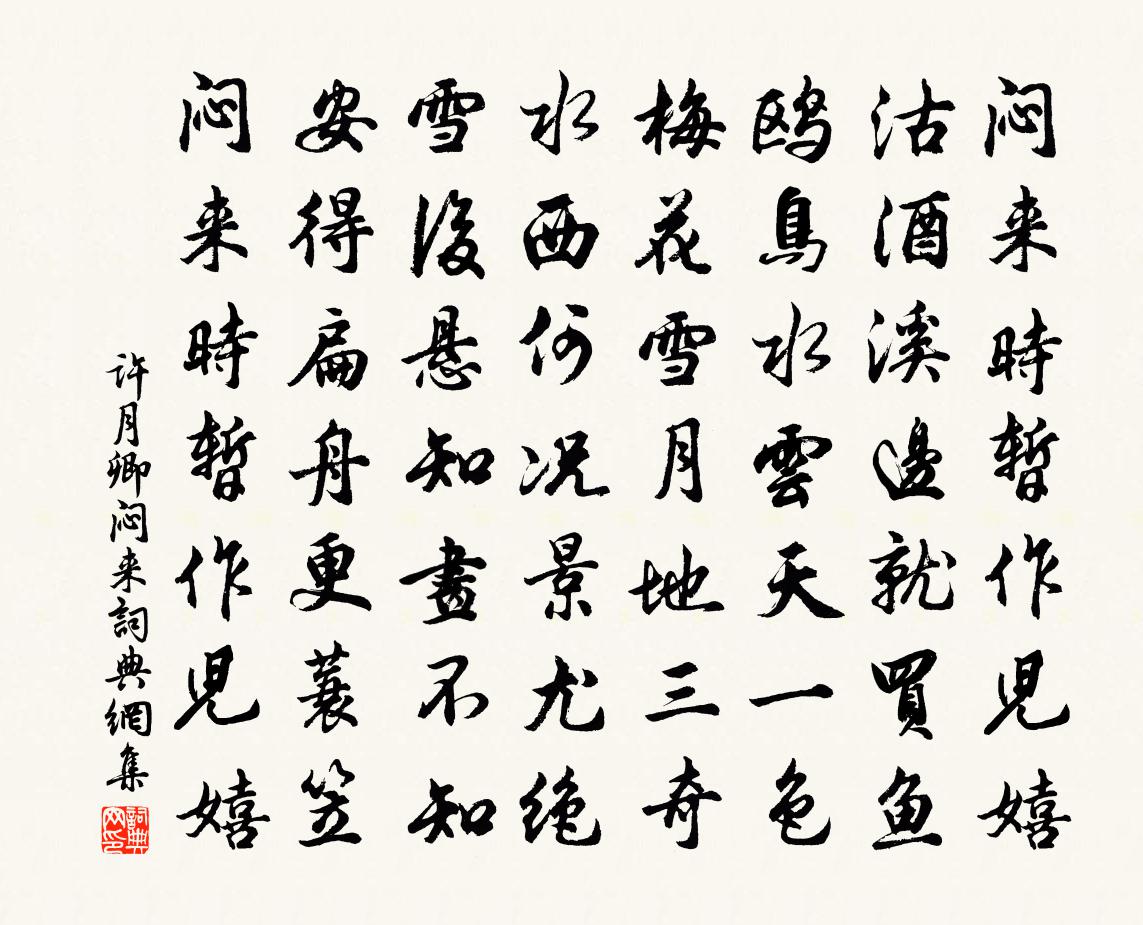 闷来時暫作児嬉
沽酒溪邊就買鱼
鸥鳥水雲天一色
梅花雪月地三奇
水西何况景尤绝
雪後悬知畫不知
安得扁舟更蓑笠
闷来時暫作児嬉
许月卿闷来詞典網集
詞典
网印